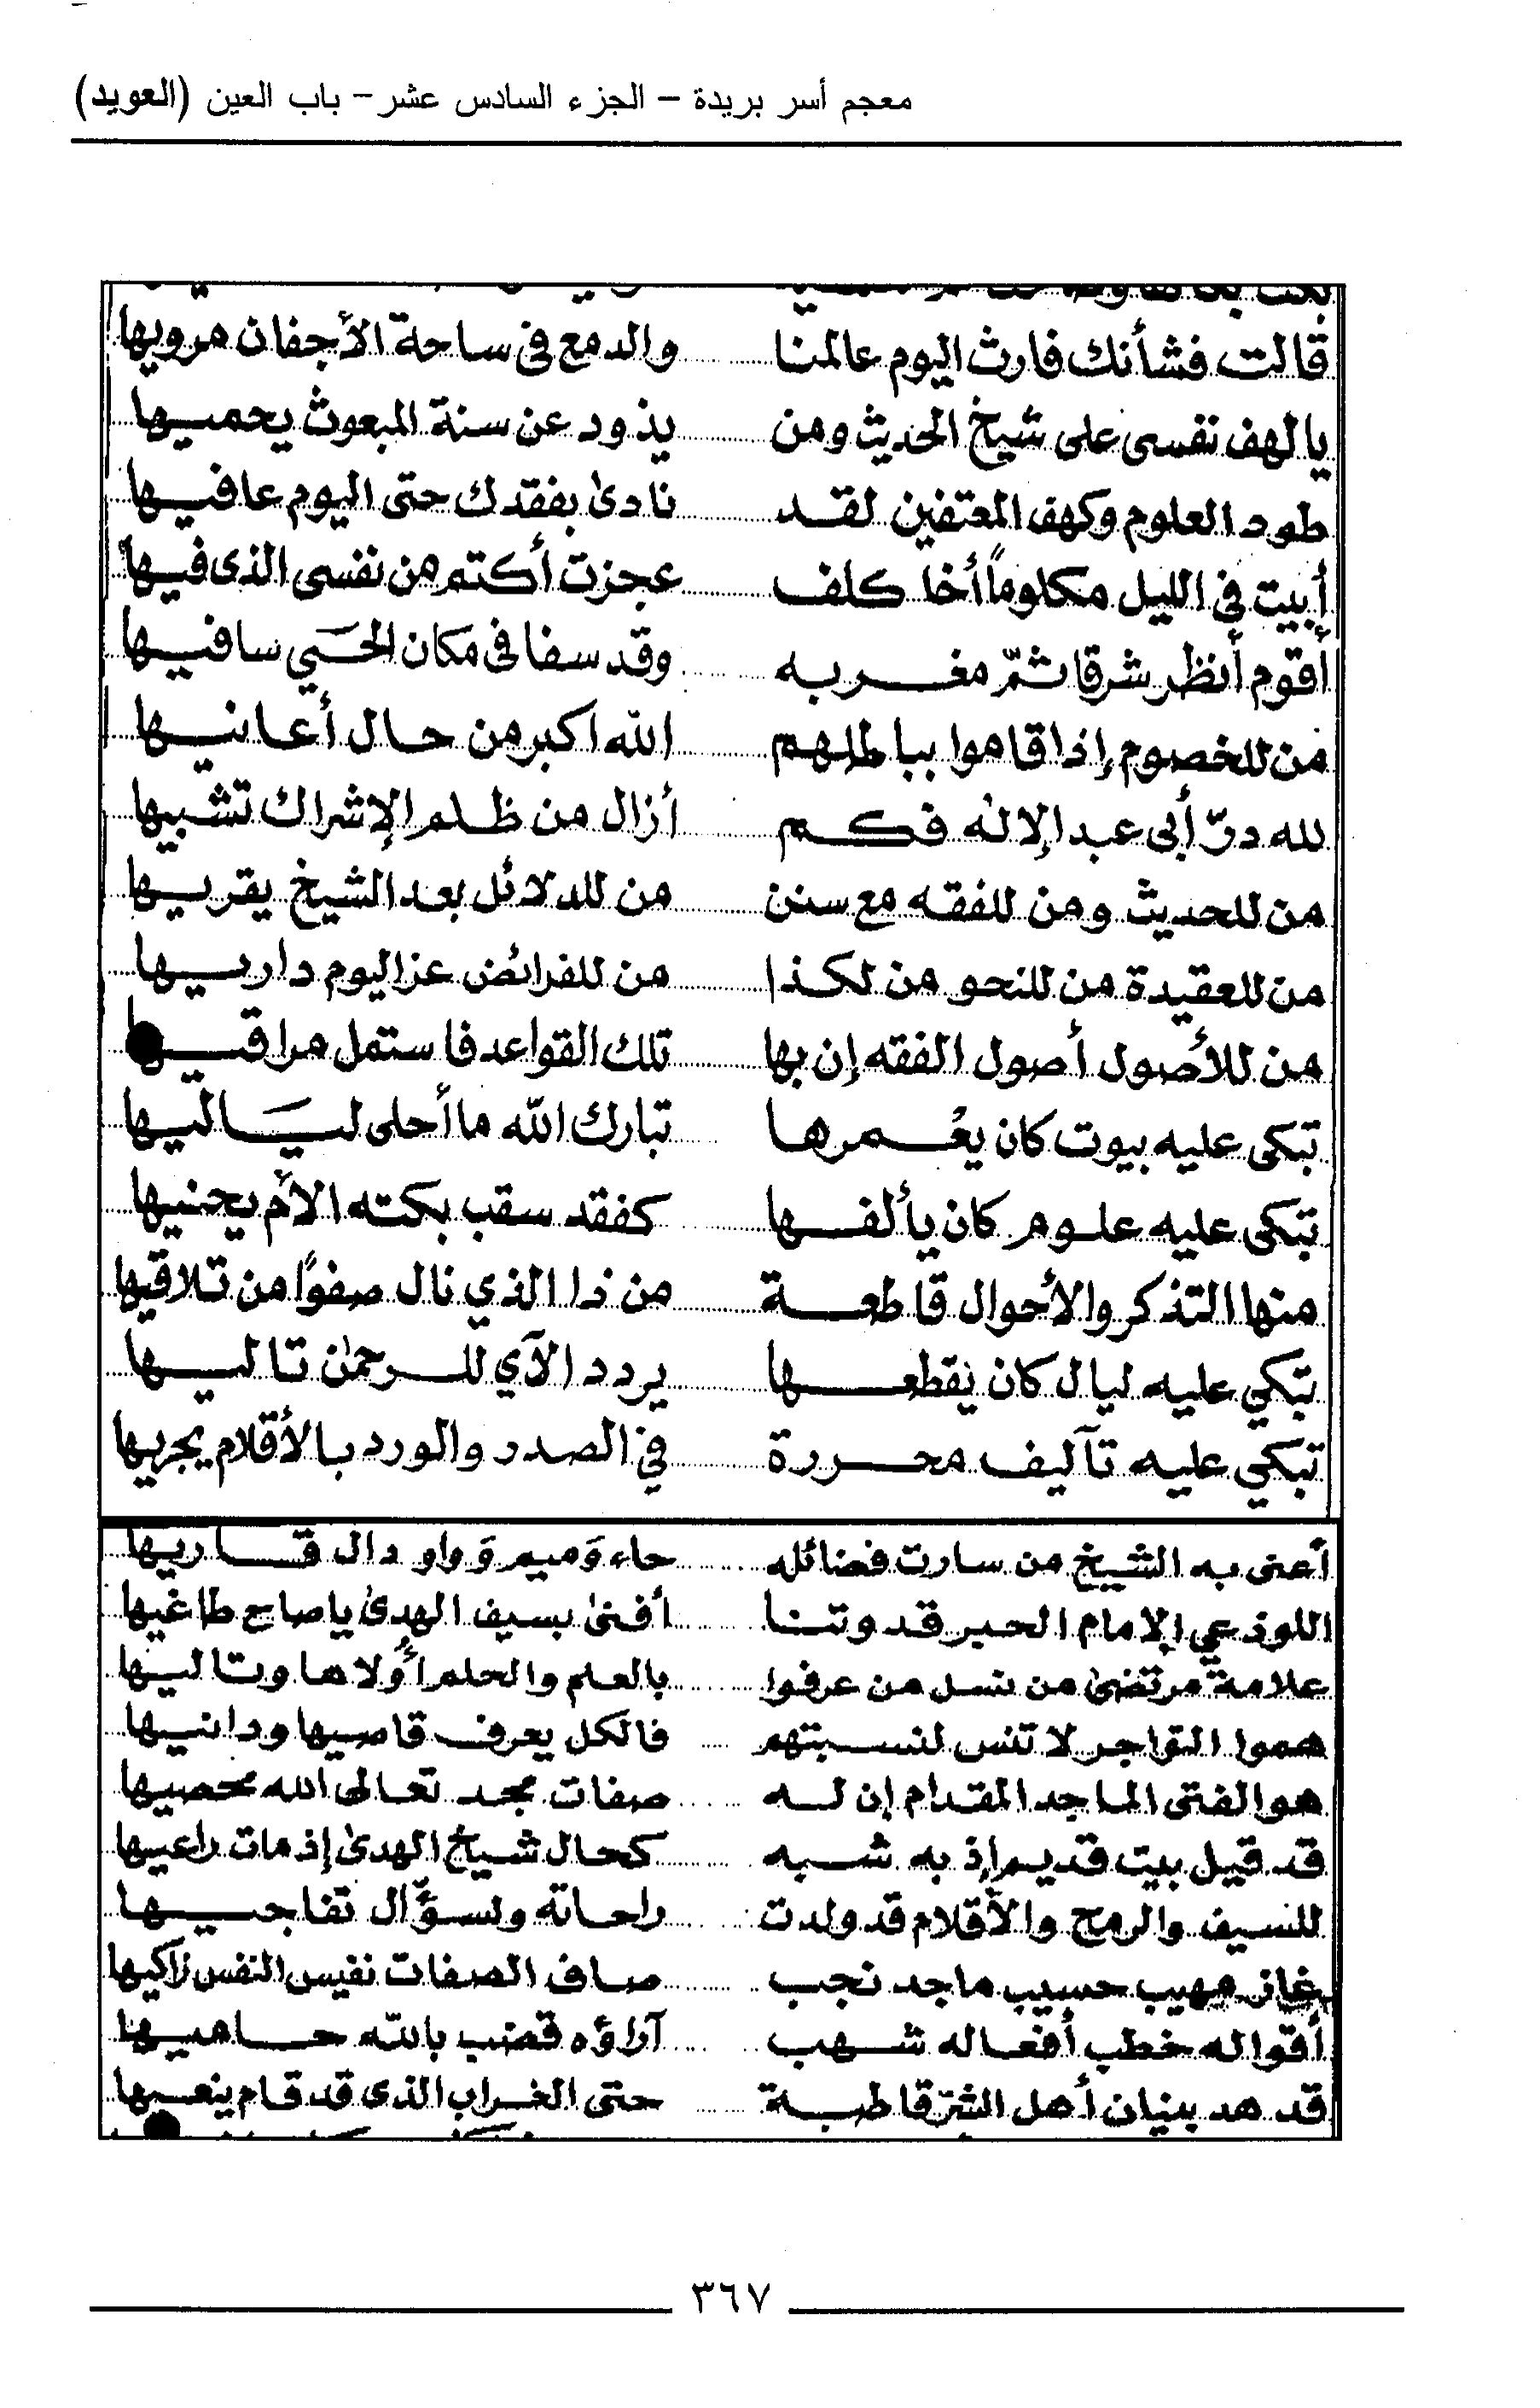 معجم أسر بريدة – الجزء السادس عشر – باب العين (العويد)
قالت فشأنك فارث اليوم عالمنا والدمع في ساحة الأجفان مرويها
يالهف نفسى على شيخ الحديث ومن يذود عن سنة المبعوث يحميها
طود العلوم وكهف المعتفين لقد نادىٰ بفقدك حتى اليوم عافيها
أبيت في الليل مكلوماً أخا كلف عجزت أكتم من نفسى الذى فيها
أقوم أنظر شرقا ثمّ مغربه وقد سفا فى مكان الحَي سافيها
من للخصوم إذا قاموا بباطلهم الله اكبر من حال أعانيها
لله درّ أبى عبد الإله فكم أزال من ظلم الإشراك تشبيها
من للحديث ومن للفقه مع سنن من للدلائل بعد الشيخ يقريها
من للعقيدة من للنحو من لكذا من للفرائض عز اليوم داريها
من للأصول أصول الفقه إن بها تلك القواعد فاستمل مراقيها
تبكى عليه بيوت كان يعُمرها تبارك الله ما أحلى ليَاليها
تبكى عليه علوم كان يألفها كفقد سقب بكته الأم يحنيها
منها التذكر والأحوال قاطعة من ذا الذي نال صفوًا من تلاقيها
تبكي عليه ليال كان يقطعها يردد الآي للرحمٰن تاليها
تبكي عليه تآليف محررة في الصدر والورد بالأقلام يجريها
أعنى به الشيخ من سارت فضائله حاء وَميم وَ واو دال قاريها
اللوذعي الإمام الحبر قدوتنا أفنىٰ بسيف الهدىٰ ياصاح طاغيها
علامة مرتضىٰ من نسل من عرفوا بالعلم والحلم أُولاها وتاليها
هموا التواجر لا تنس لنسبتهم فالكل يعرف قاصيها ودانيها
هو الفتى الماجد المقدام إن له صفات مجد تعالى الله محصيها
قد قيل بيت قديم إذ به شبه كحال شيخ الهدىٰ إذ مات راعيها
للسيف والرمح والأقلام قد ولدت راحاته ولسؤّال تفاجيها
غاز مهيب حسيب ماجد نجب صاف الصفات نفيس النفس زاكيها
أقواله خطب أفعاله شهب آراؤه قضب بالله حاميها
قد هد بنيان أهل الشرّ قاطبة حتى الغراب الذى قد قام ينعيها
٣٦٧